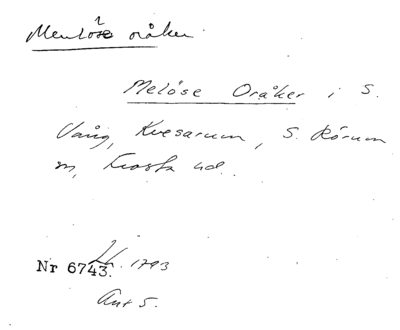 Menlöse oråker
Melöse Oråker i S.
Vång, Kvesarum, S. Rörum
m, Frosta hd.
Nr 6743. 1793
Ant 5.